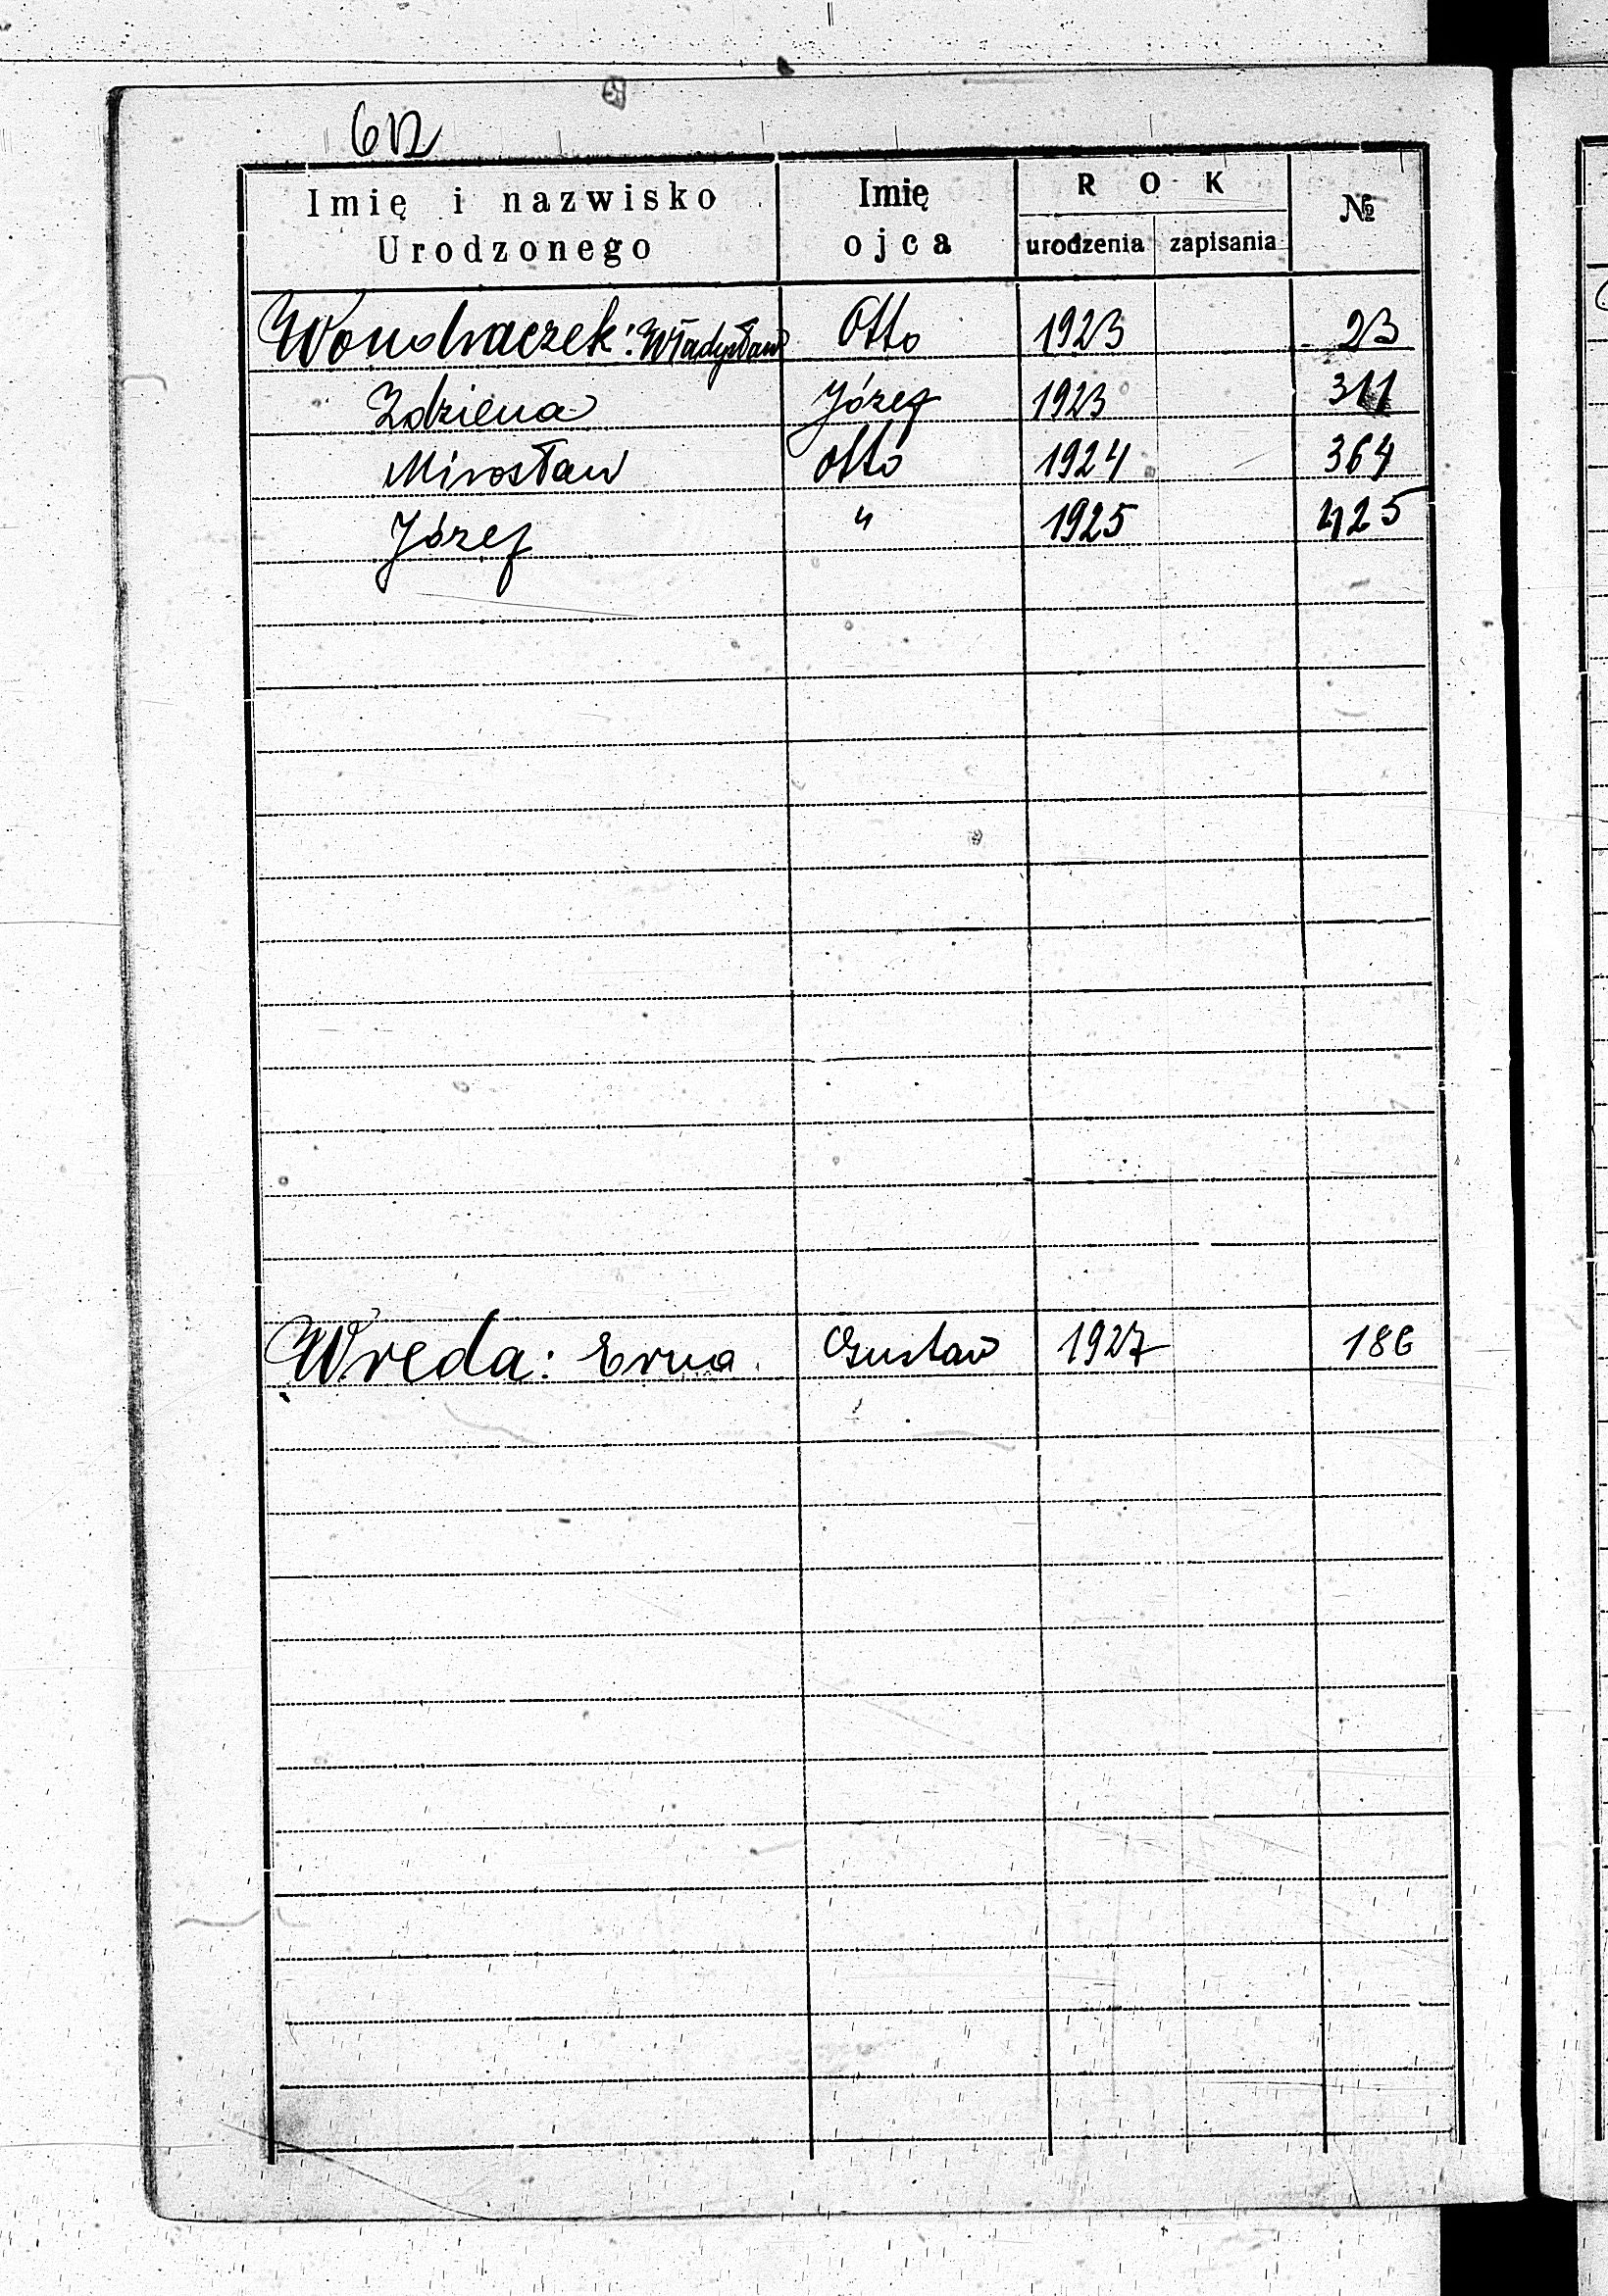 612
Imię i nazwisko Urodzonego | Imię ojca | ROK urodzenia | zapisania | №
Wondraczek: Władysław Otto 1923 23
Zdziena Józef 1923 311
Mirosław Otto 1924 364
Józef " 1925 425
Wreda: Erna Gustaw 1927 186